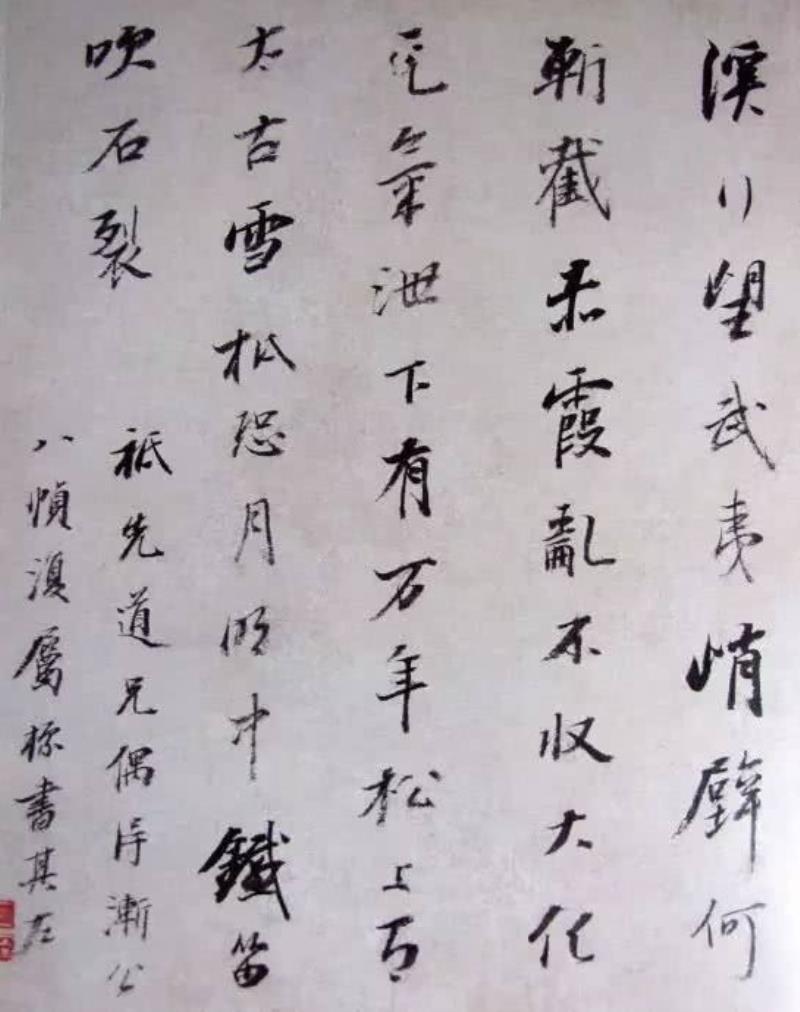 溪行望武夷峭壁何
斬截赤霞亂不收大化
元氣泄下有万年松上有
太古雪秪恐月明中鐵笛
吹石裂
祗先道兄偶得漸公
八幀漫屬添書其左